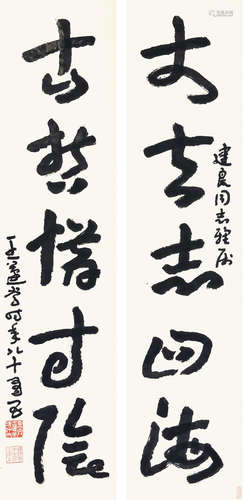 建良同志雅属
丈夫志四海
古哲惜寸阴
王蘧常时年八十有五